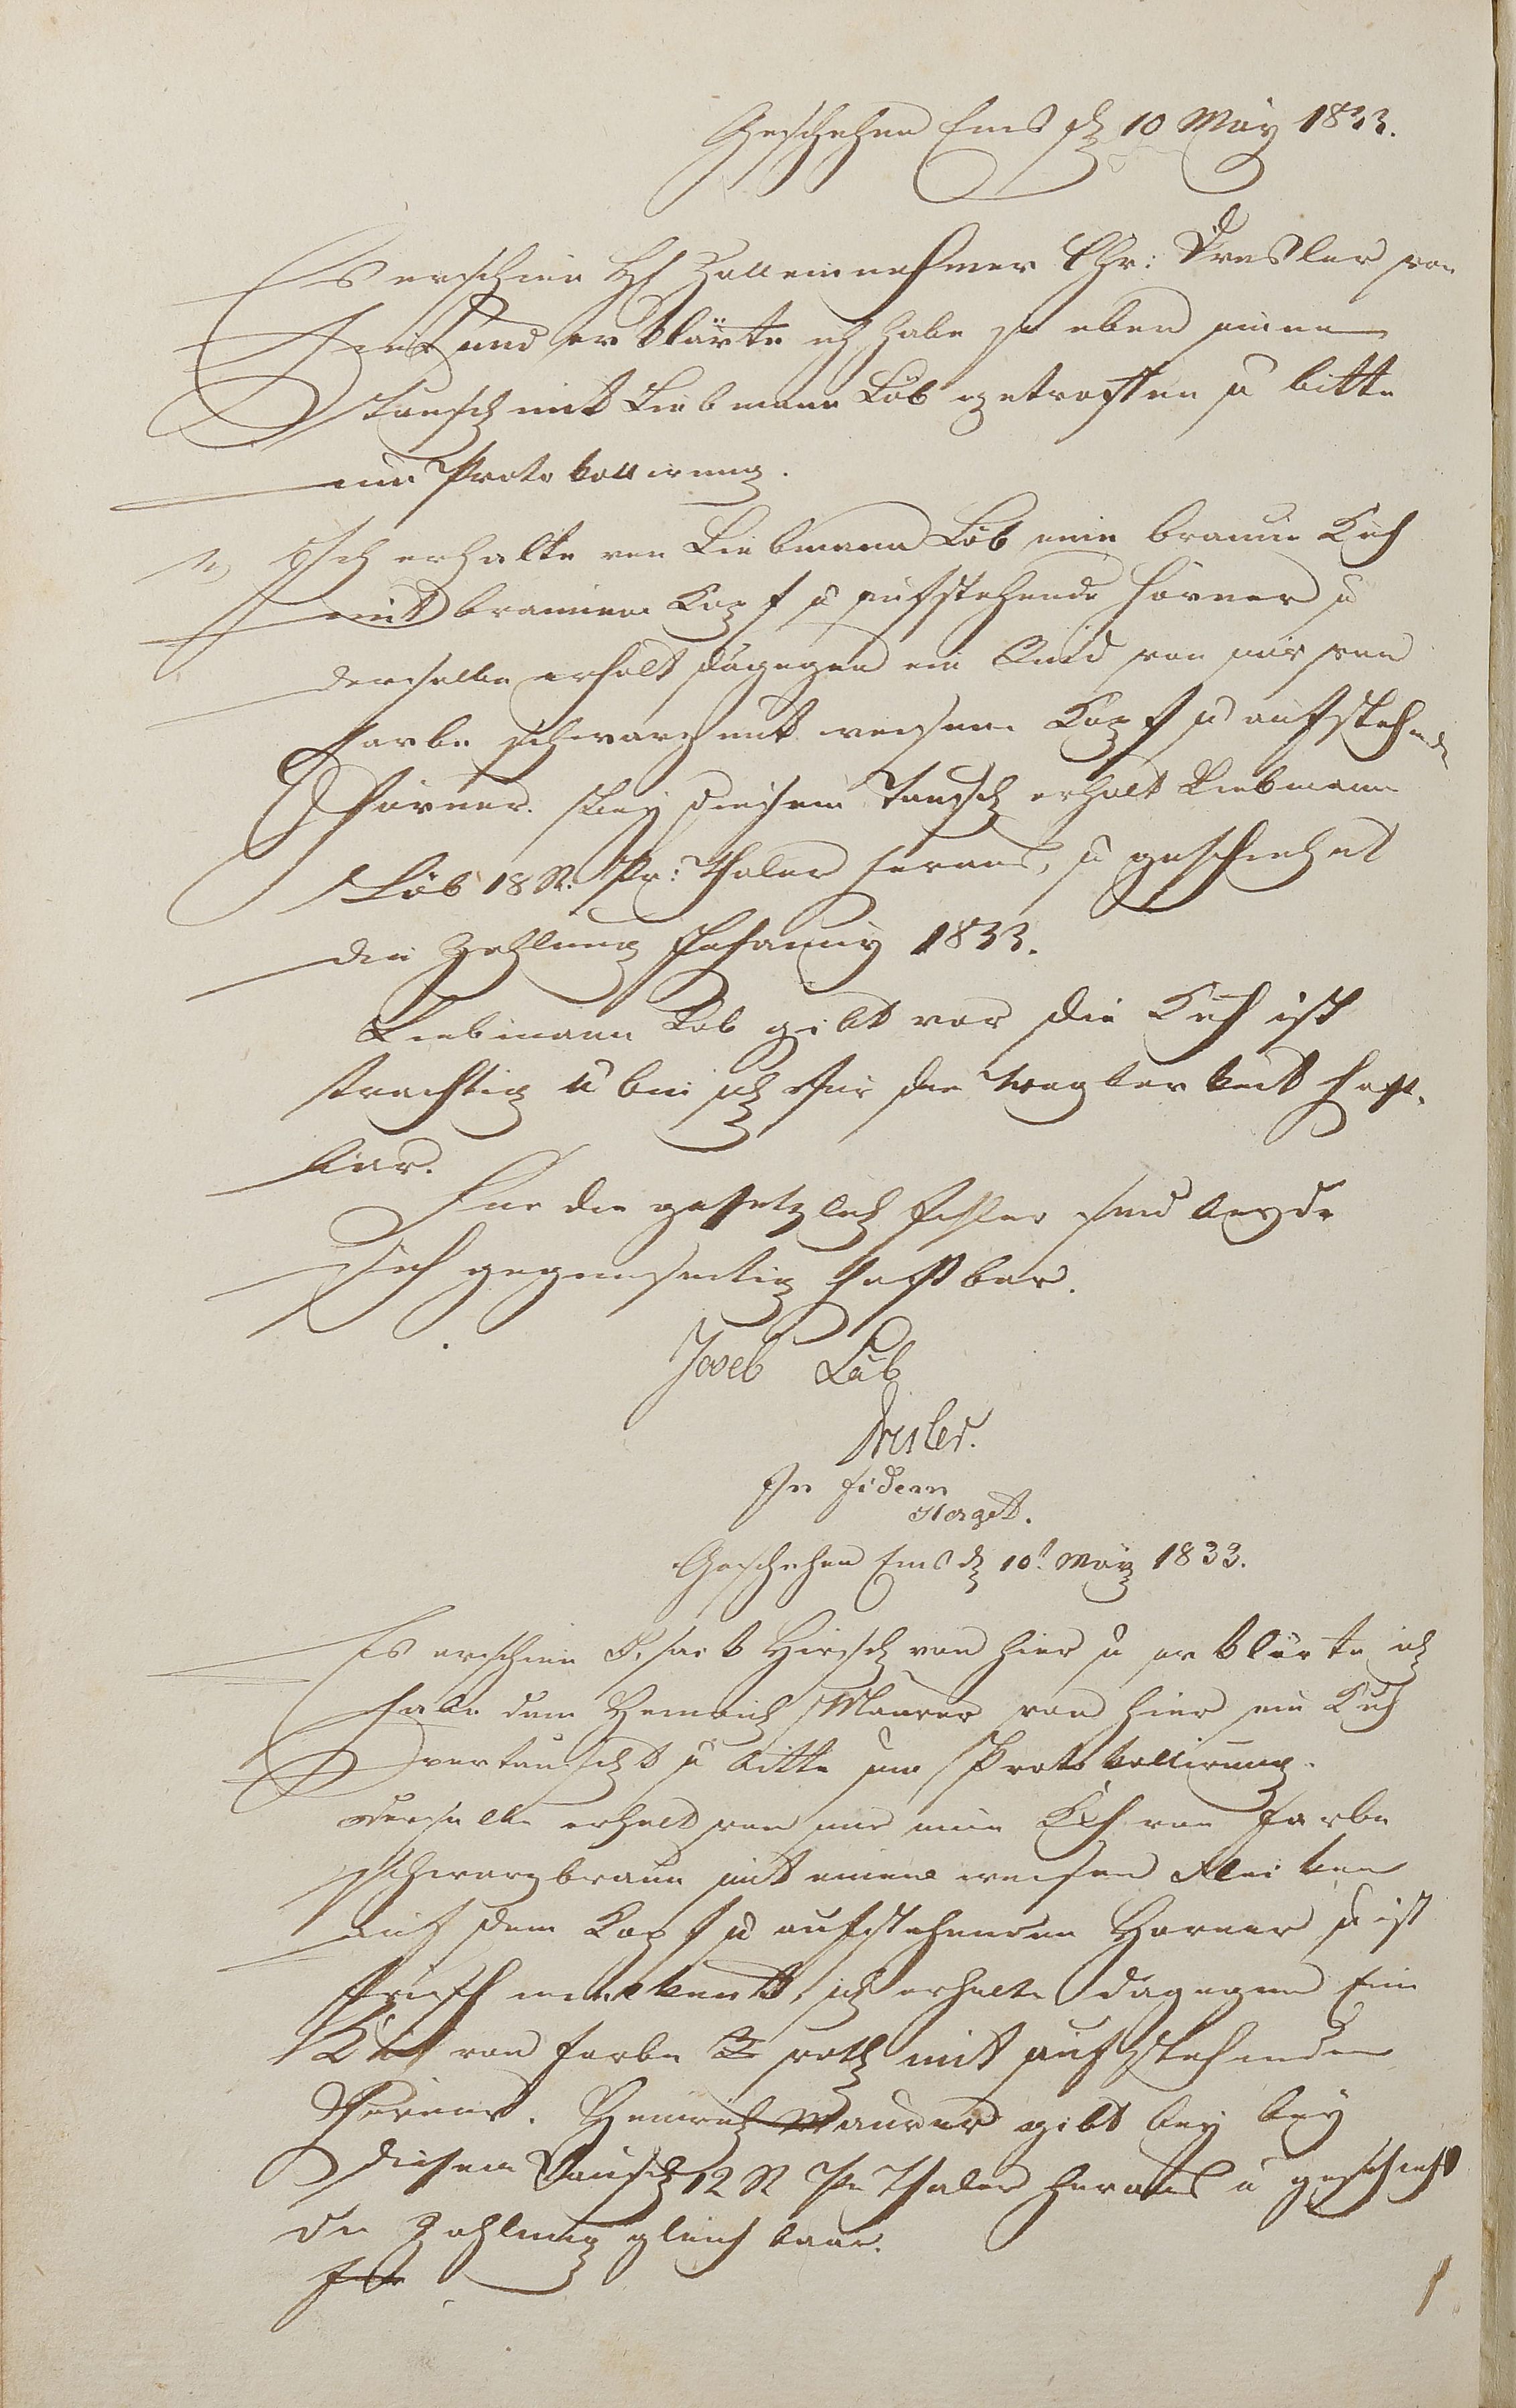 Geschehen Ems d 10 May 1833.
Es erschien H Zolleinnehmer Chr: Dresler von
hier und erklärte ich habe so eben einen
Tausch mit Liebmann Löb getroffen u bitte
um Protokollierung.
1, Ich erhalte von Liebmann Löb eine braune Kuh
mit braunem Kopf u aufstehende Hörner u
derselbe erhält dagegen ein Rind von mir von
Farbe schwarz mit weisem Kopf u aufstehende
Hörner. Bey diesem Tausch erhält Liebmann
Löb 18 R. Pr: Thaler heraus, u geschiehet
die Zahlung Johanny 1833.
Liebmann Löb gibt vor die Kuh ist
trächtig u bin ich für die Tragbarkeit haft-
bar.
Für die gesetzlich Fehler sind beyde
sich gegenseitig haftbar.
Joseb Löb
Dresler.
In fidem
Geschehen Ems d 10t May 1833.
Es erschien Hirsch von hier u erklärte ich
habe dem Heinrich Maurer von hier ein Kuh
vertauscht u bitte um Protokollirung.
Derselbe erhält von mir eine Kuh von Farbe
schwarzbraun mit einem weisen Flecken
auf dem Kopf u aufstehenden Hörner u ist
frisch melkend, ich erhalte dagegen Eine
Kuh von Farbe roth mit aufstehenden
Hörner. Heinrich Maurer gibt bey bey
diesem Tausch 12 R Pr Thaler heraus u geschieht
die Zahlung gleich baar.